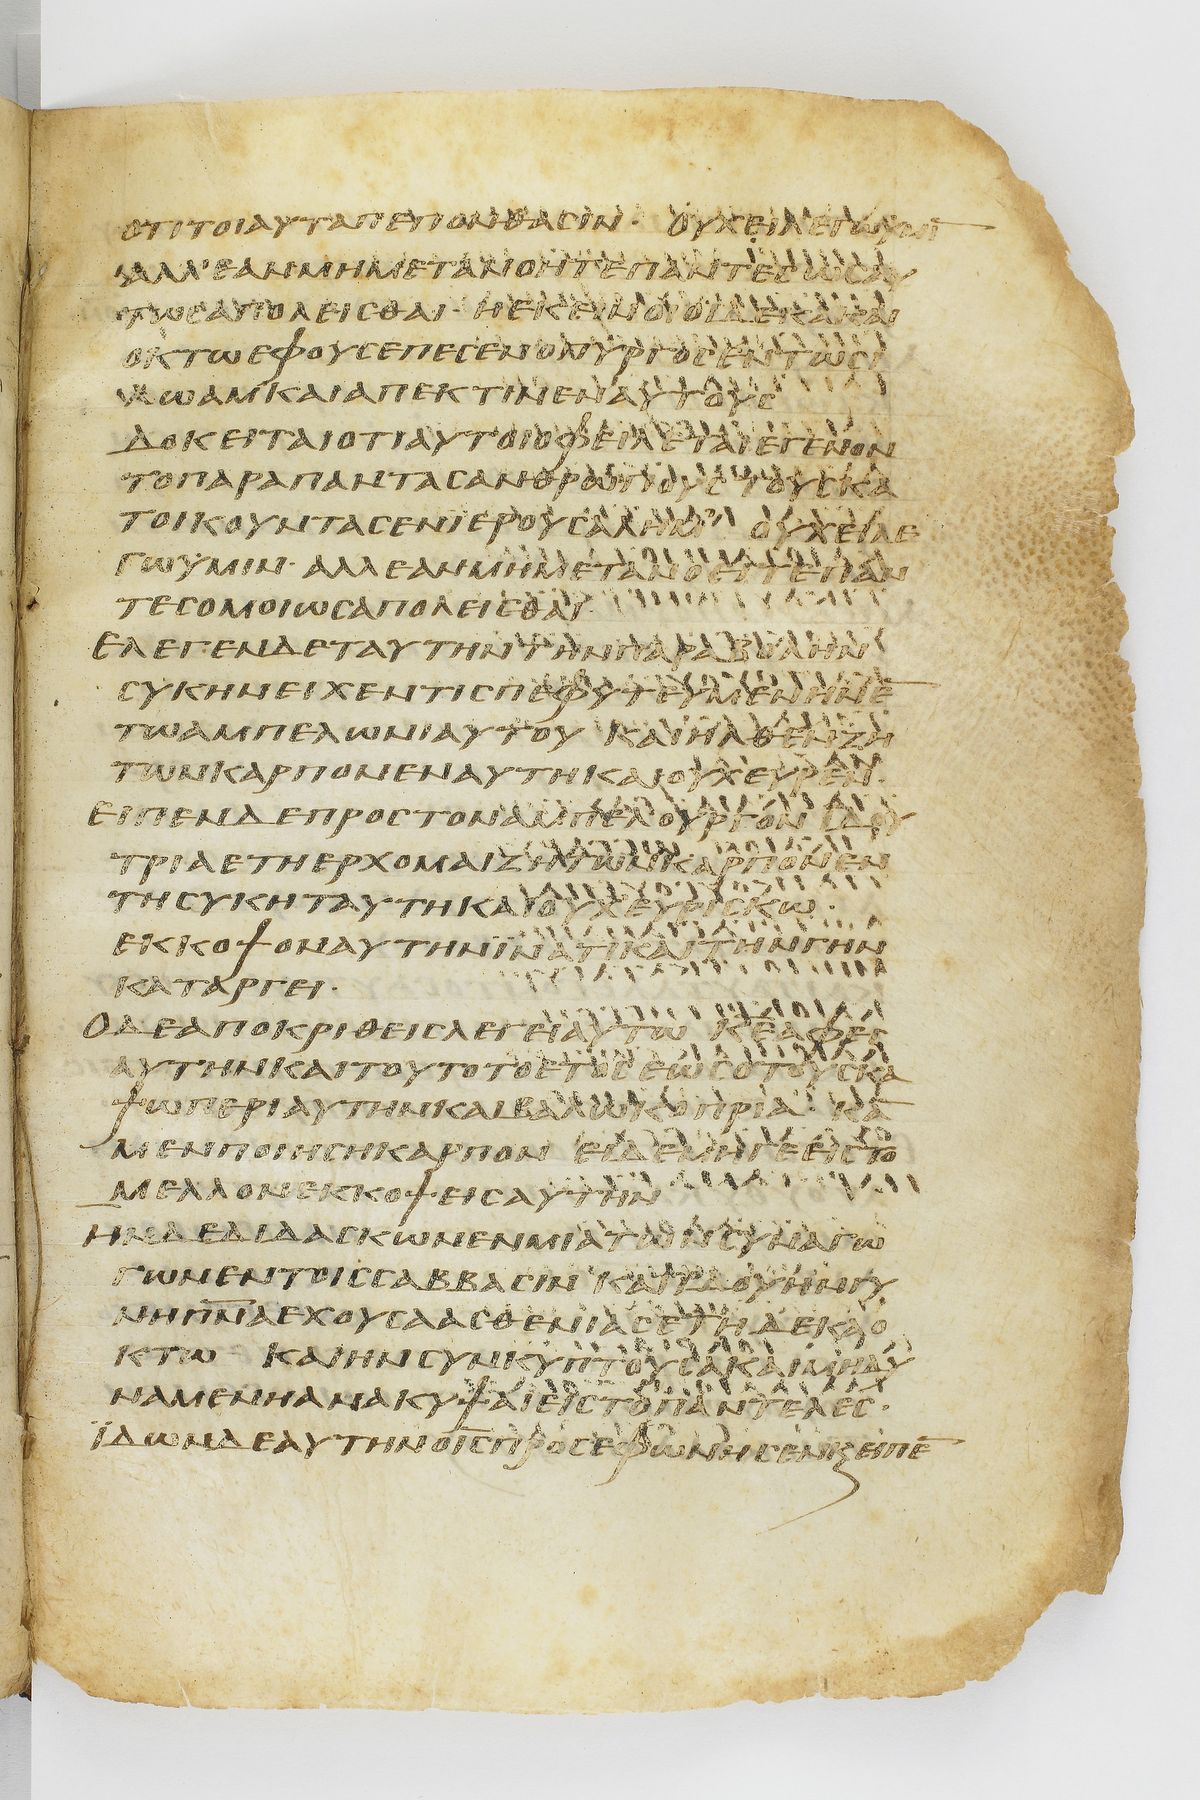 οτιτοιαυταπεπονθασιν · ουχειλεγωυμῑ
αλλ'εανμημετανοητεπαντεσωσαυ
τωσαπολεισθαι · ηεκεινοιοιδεκακαι
οκτωεφουσεπεσενοπυργοσεντωσι
λωαμκαιαπεκτινεναυτουσ
δοκειταιοτιαυτοιοφειλεταιεγενον
τοπαραπαντασανθρωπουστουσκα
τοικουντασενιερουσαλημ' ουχειλε
γωϋμιν · αλλεανμημετανοειτεπαν
τεσομοιωσαπολεισθαι
ελεγενδεταυτηντηνπαραβολην
συκηνειχεντισπεφυτευμενηνε̄
τωαμπελωνιαυτου καιηλθενζη
τωνκαρπονεναυτηκαιουχευρεν ·
ειπενδεπροστοναμπελουργονιδου
τριαετηερχομαιζητωνκαρπονεν
τησυκηταυτηκαιουχευρισκω ·
εκκοψοναυτηνϊνατικαιτηνγην
καταργει ·
οδεαποκριθεισλεγειαυτω κ̄ε̄αφεσ
αυτηνκαιτουτοτοετοσεωσοτουσκα
ψωπεριαυτηνκαιβαλωκοπρια · κᾱ
μενποιησηκαρπον ειδεμηγεειστο
μελλονεκκοψεισαυτην
ηνδεδιδασκωνενμιατωνσυναγω
γωνεντοισσαββασιν καιϊδουηνγυ
νηπ̄ν̄αεχουσαασθενιασετηδεκαο
κτω καιηνσυνκυπτουσακαιμηδυ
ναμενηανακυψαιειστοπαντελεσ ·
ϊδωνδεαυτηνοῑσ̄προσεφωνησενκειπε̄